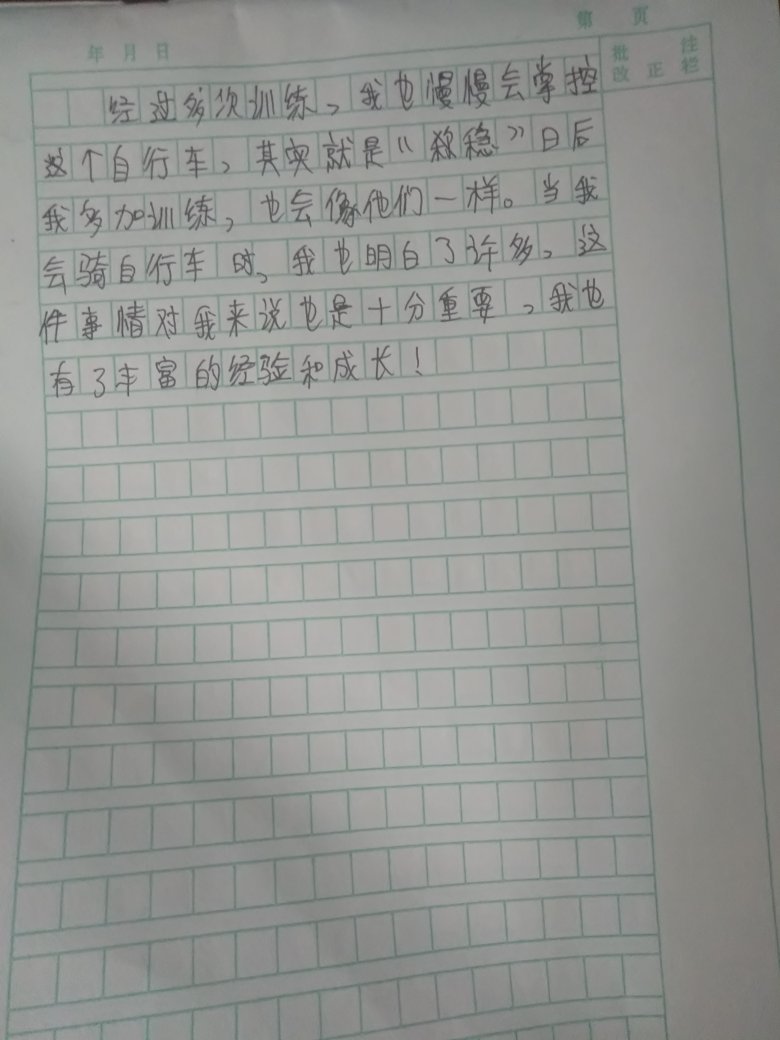 第 页
年 月 日
批 注
改 正 栏
经过多次训练，我也慢慢会掌控
这个自行车，其实就是“求稳”日后
我多加训练，也会像他们一样。当我
会骑自行车时，我也明白了许多，这
件事情对我来说也是十分重要，我也
有了丰富的经验和成长！